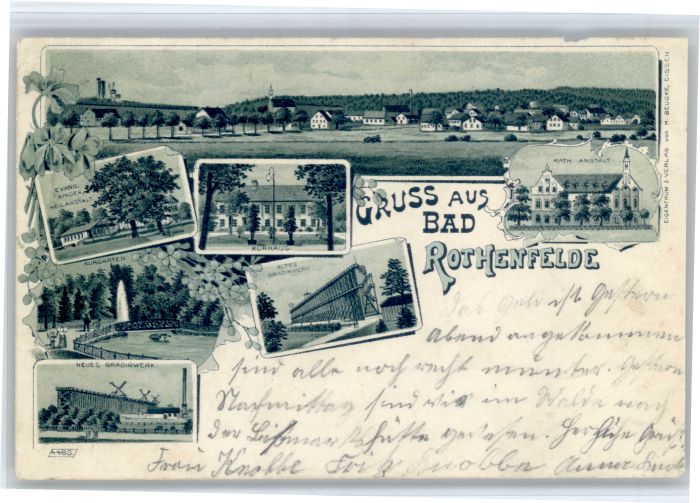 EVANG.
KINDER
HEILANSTALT
KURHAUS
KATH. ANSTALT.
EIGENTHUM & VERLAG von H. BEUCKE, DISSEN
GRUSS AUS
BAD
ROTHENFELDE
KURGARTEN
ALTES
GRADIRWERK
NEUES GRADIRWERK.
4463.
Das Geld ist Gestern
Abend angekommen
sind alle noch recht munter. Gestern
Nachmittag sind wir im Walde nach
der Bismarkshütte gewesen. Herzliche
Frau Knobbe Fritz Knobbe Anna